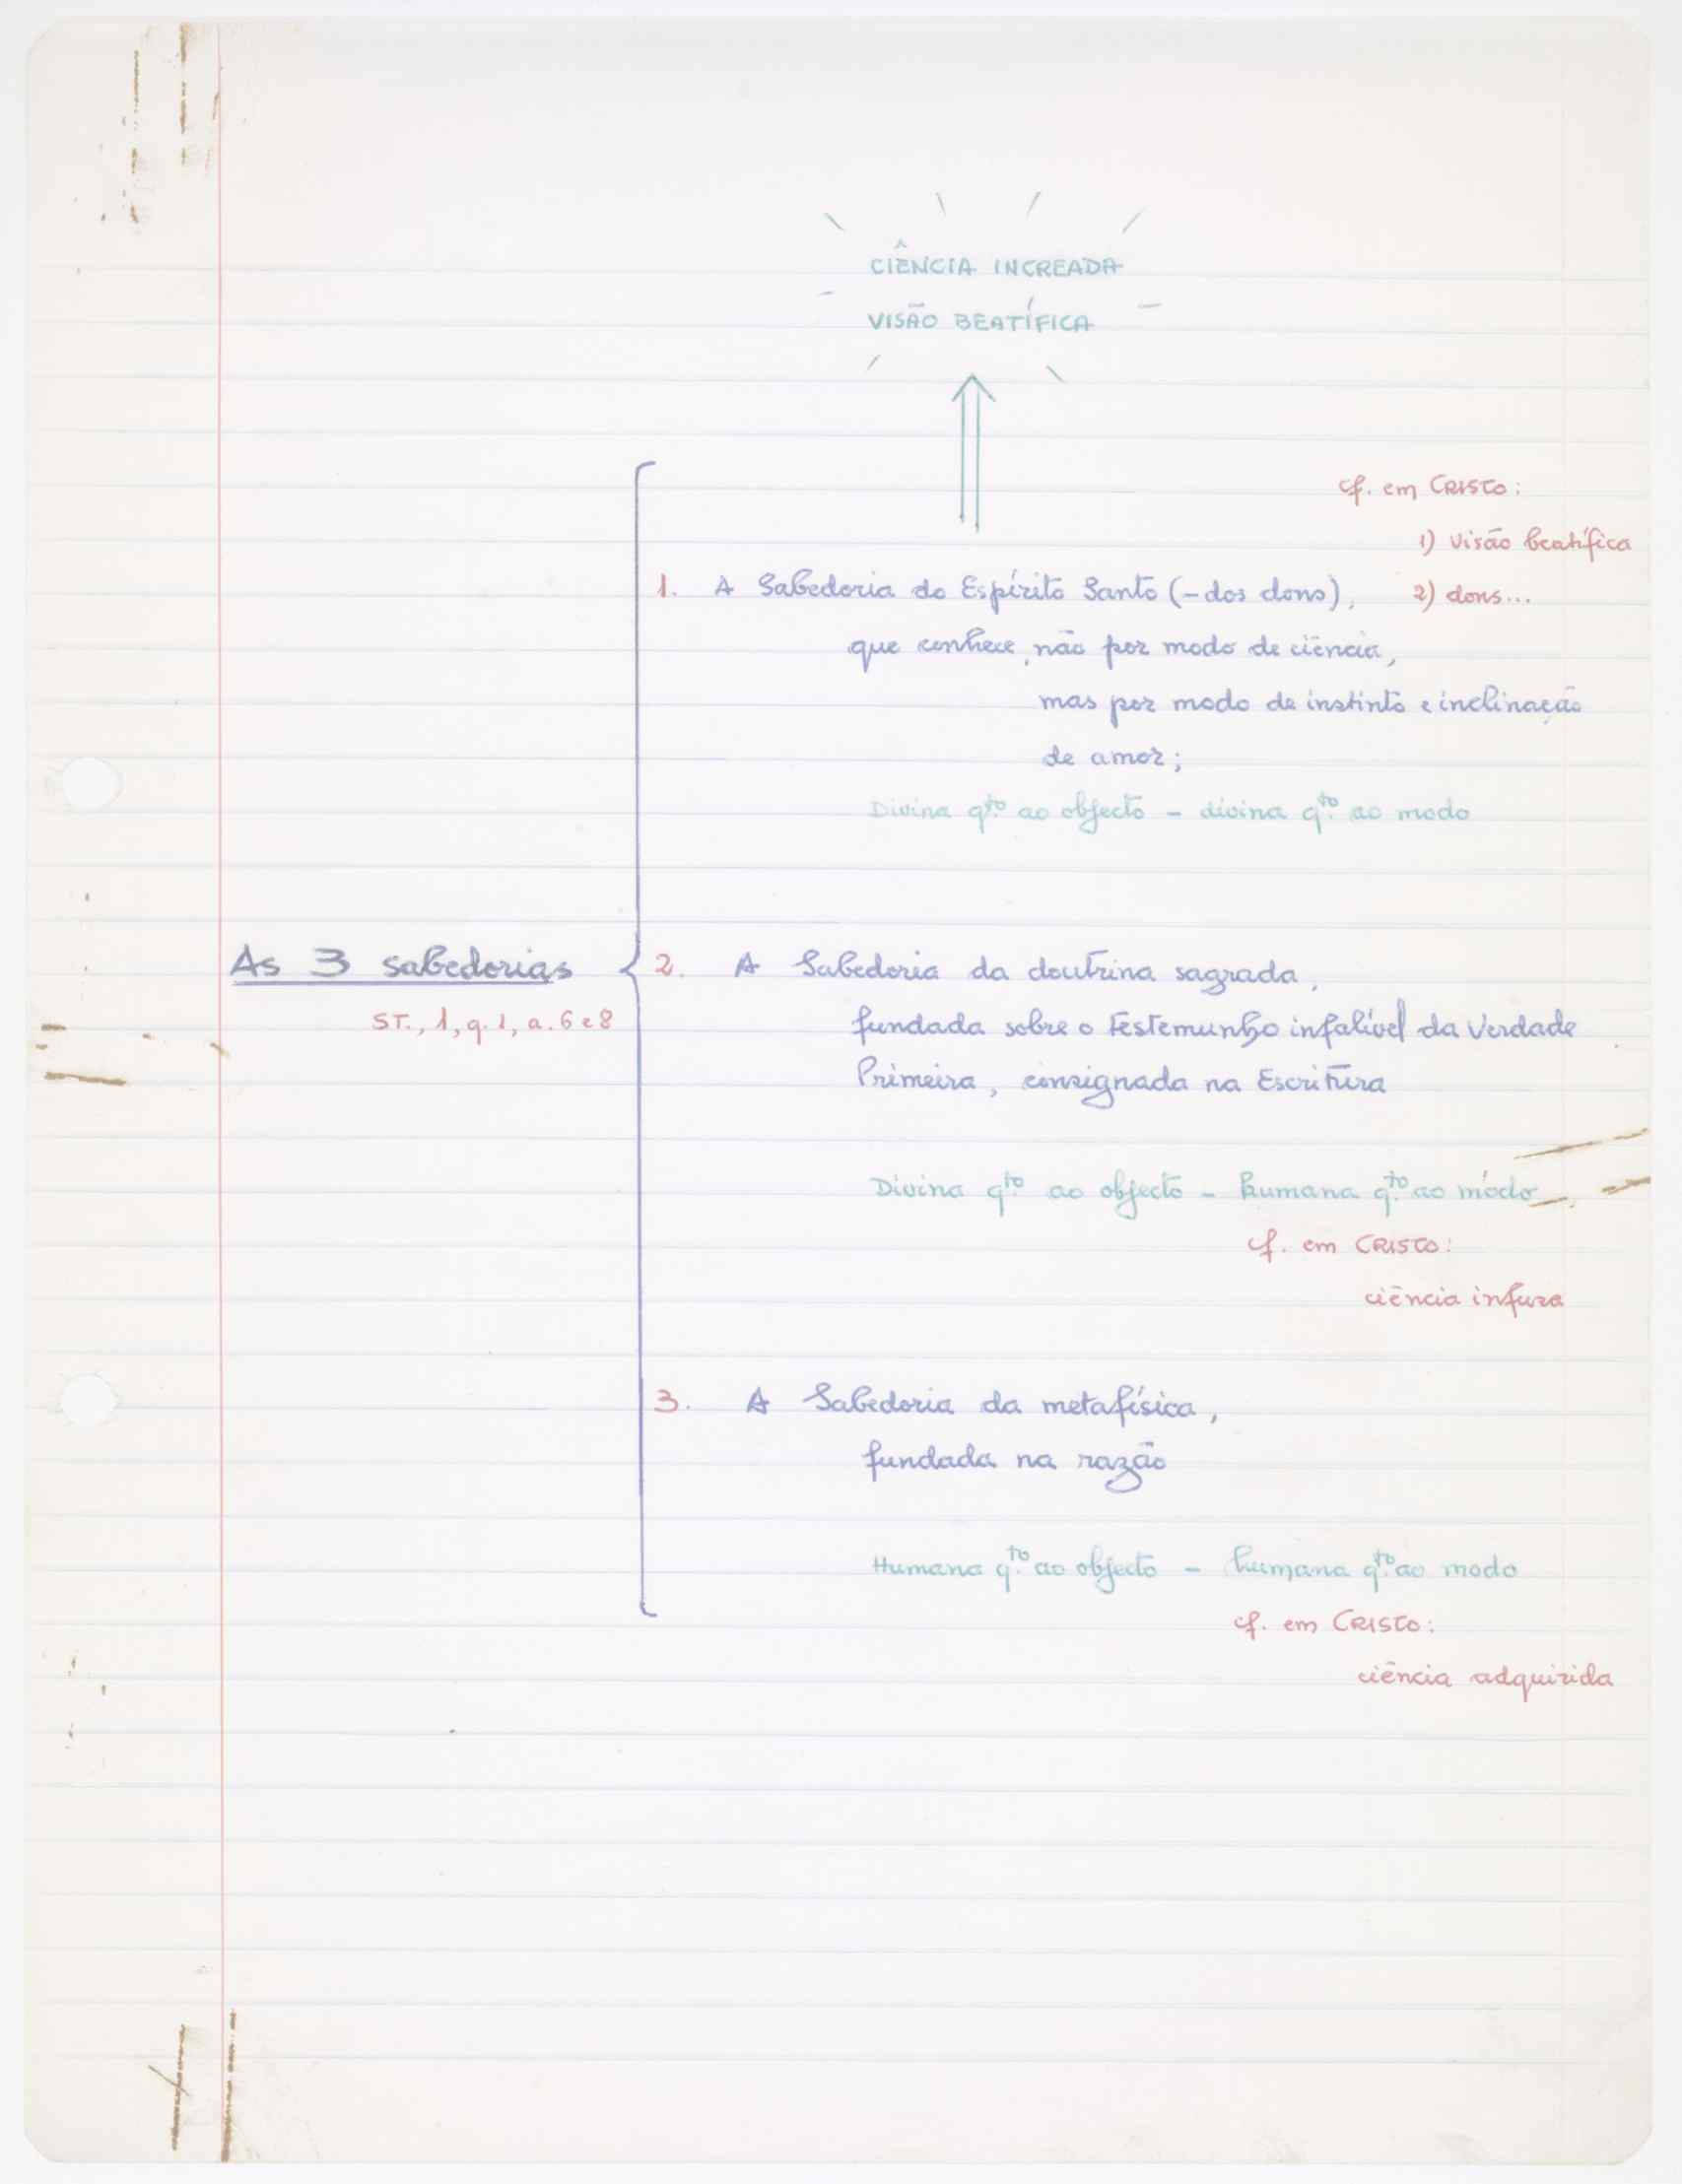 CIÊNCIA INCREADA
VISÃO BEATÍFICA
cf. em CRISTO:
1) visão beatífica
1. A Sabedoria do Espírito Santo (-dos dons),
2) dons...
que conhece, não por modo de ciência,
mas por modo de instinto e inclinação
de amor;
Divina qto. ao objecto - divina qto. ao modo
As 3 sabedorias
2. A Sabedoria da doutrina sagrada,
ST., 1, q. 1, a. 6 e 8
fundada sobre o Testemunho infalível da Verdade
Primeira, consignada na Escritura
Divina qto. ao objecto - humana qto. ao modo
cf. em CRISTO:
ciência infusa
3. A Sabedoria da metafísica,
fundada na razão
Humana qto. ao objecto - humana qto. ao modo
cf. em CRISTO:
ciência adquirida